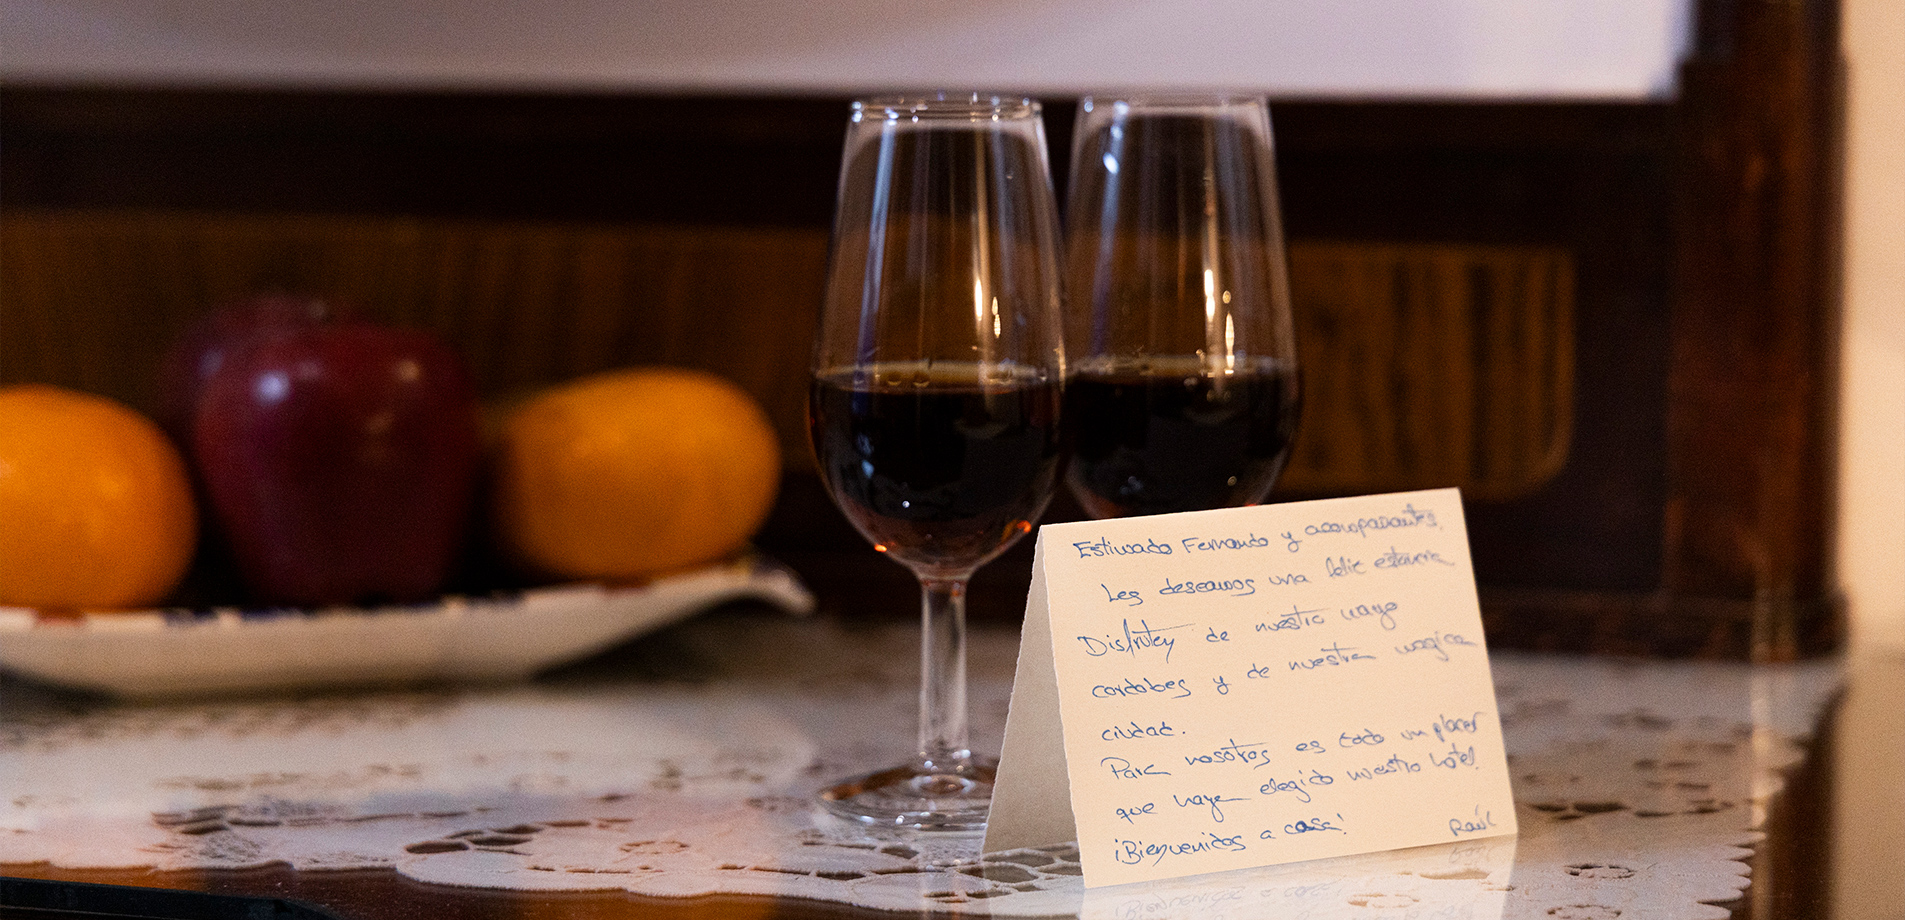 Estimado Fernando y acompañantes,
Les deseamos una feliz estancia
Disfruten de nuestro mayo
cordobes y de nuestra magica
ciudad.
Para nosotros es todo un placer
que haya elegido nuestro hotel.
¡Bienvenidos a casa!
Raúl